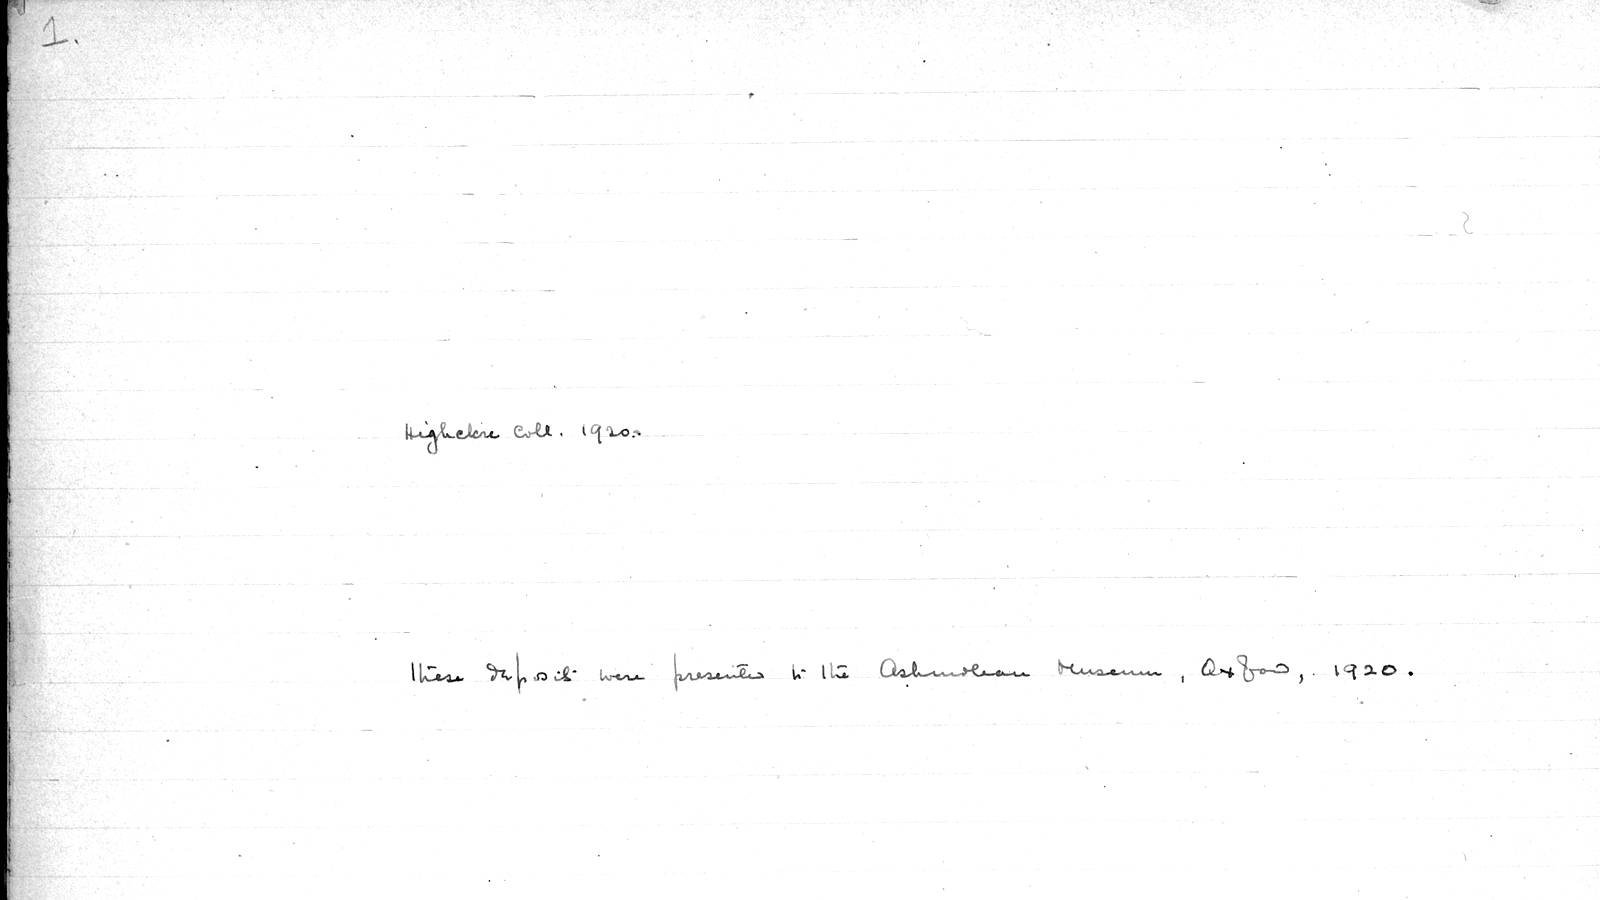 1.
Highclere Coll. 1920.
These deposits were presented to the Ashmolean Museum, Oxford, 1920.